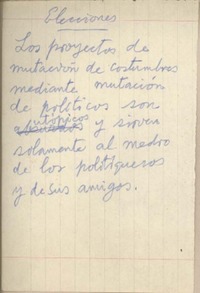 Elecciones
Los proyectos de
mutación de costumbres
mediante mutación
de políticos son
utópicos
y sirven
solamente al medro
de los politiquesos
y de sus amigos.